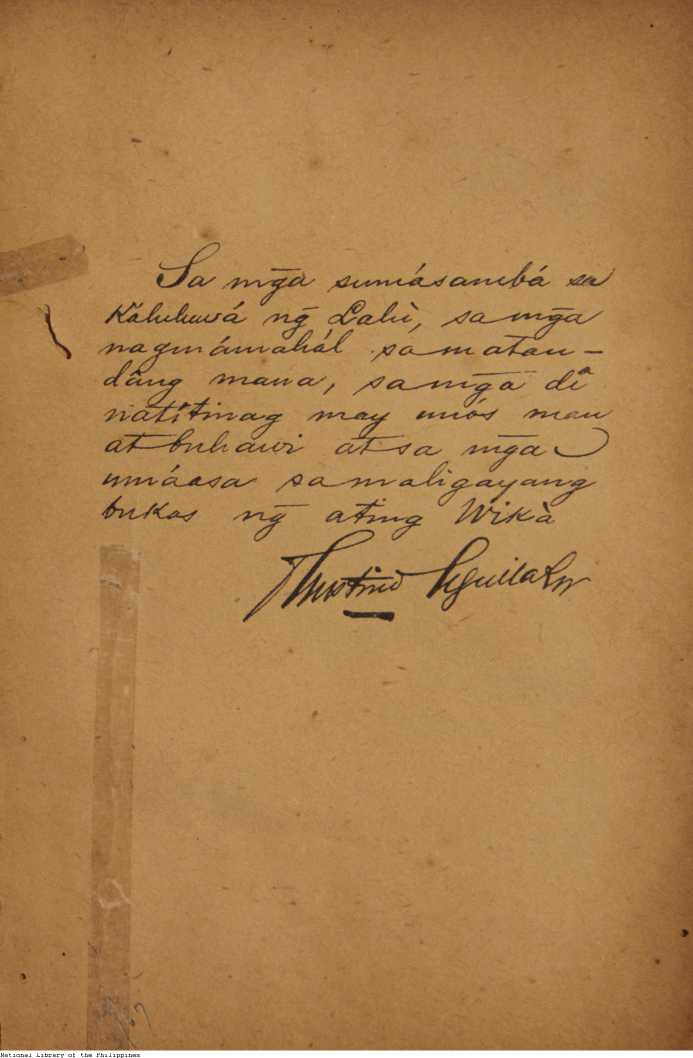 Sa mg̃a sumásambá sa
Káluluwá ng̃ Lahì, sa mg̃a
nagmámahál sa matan-
dâng mana, sa mg̃a dî
natítinag may unós man
at buhawi at sa mg̃a
umáasa sa maligayang
bukas ng̃ ating Wikà
Faustino Aguilar
National Library of the Philippines